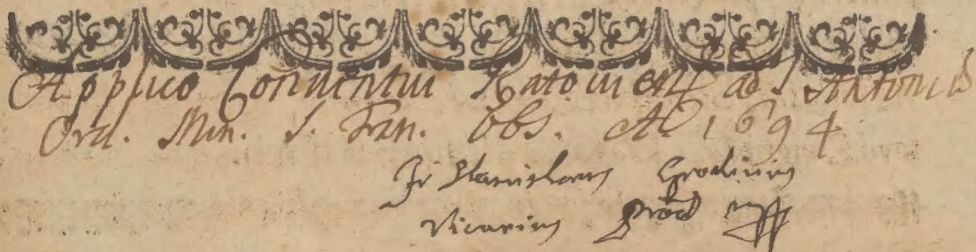 Applico Conventui Ratoviens ad S. Antoniū
Ord. Min. S. Fran. Obs. A͞o 1694
Fr Stanislaus Grodinius
Vicarius Prov͞